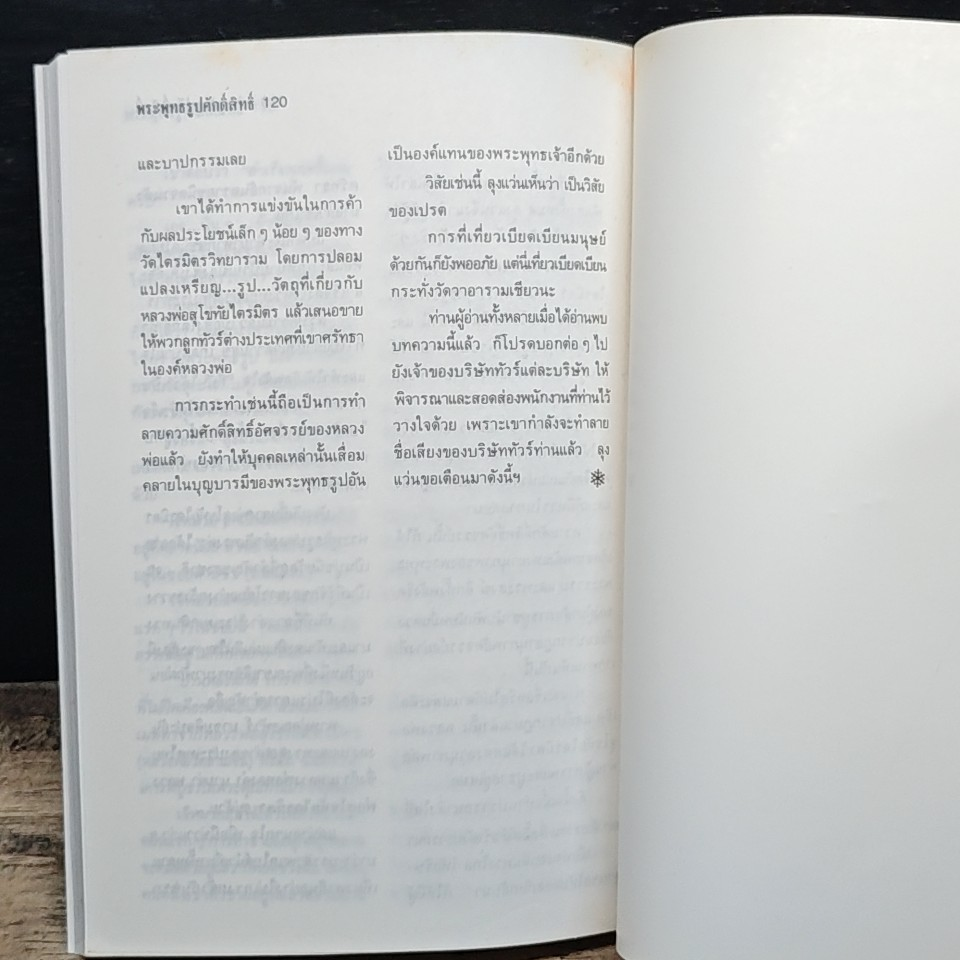 พระพุทธรูปศักดิ์สิทธิ์ 120
และบาปกรรมเลย
เขาได้ทำการแข่งขันในการค้า
กับผลประโยชน์เล็ก ๆ น้อย ๆ ของทาง
วัดไตรมิตรวิทยาราม โดยการปลอม
แปลงเหรียญ...รูป...วัตถุที่เกี่ยวกับ
หลวงพ่อสุโขทัยไตรมิตร แล้วเสนอขาย
ให้พวกลูกทัวร์ต่างประเทศที่เขาศรัทธา
ในองค์หลวงพ่อ
การกระทำเช่นนี้ถือเป็นการทำ
ลายความศักดิ์สิทธิ์อัศจรรย์ของหลวง
พ่อแล้ว ยังทำให้บุคคลเหล่านั้นเสื่อม
คลายในบุญบารมีของพระพุทธรูปอัน
เป็นองค์แทนของพระพุทธเจ้าอีกด้วย
วิสัยเช่นนี้ ลุงแว่นเห็นว่า เป็นวิสัย
ของเปรต
การที่เที่ยวเบียดเบียนมนุษย์
ด้วยกันก็ยังพออภัย แต่นี่เที่ยวเบียดเบียน
กระทั่งวัดวาอารามเชียวนะ
ท่านผู้อ่านทั้งหลายเมื่อได้อ่านพบ
บทความนี้แล้ว ก็โปรดบอกต่อ ๆ ไป
ยังเจ้าของบริษัททัวร์แต่ละบริษัท ให้
พิจารณาและสอดส่องพนักงานที่ท่านไว้
วางใจด้วย เพราะเขากำลังจะทำลาย
ชื่อเสียงของบริษัททัวร์ท่านแล้ว ลุง
แว่นขอเตือนมาดังนี้ฯ